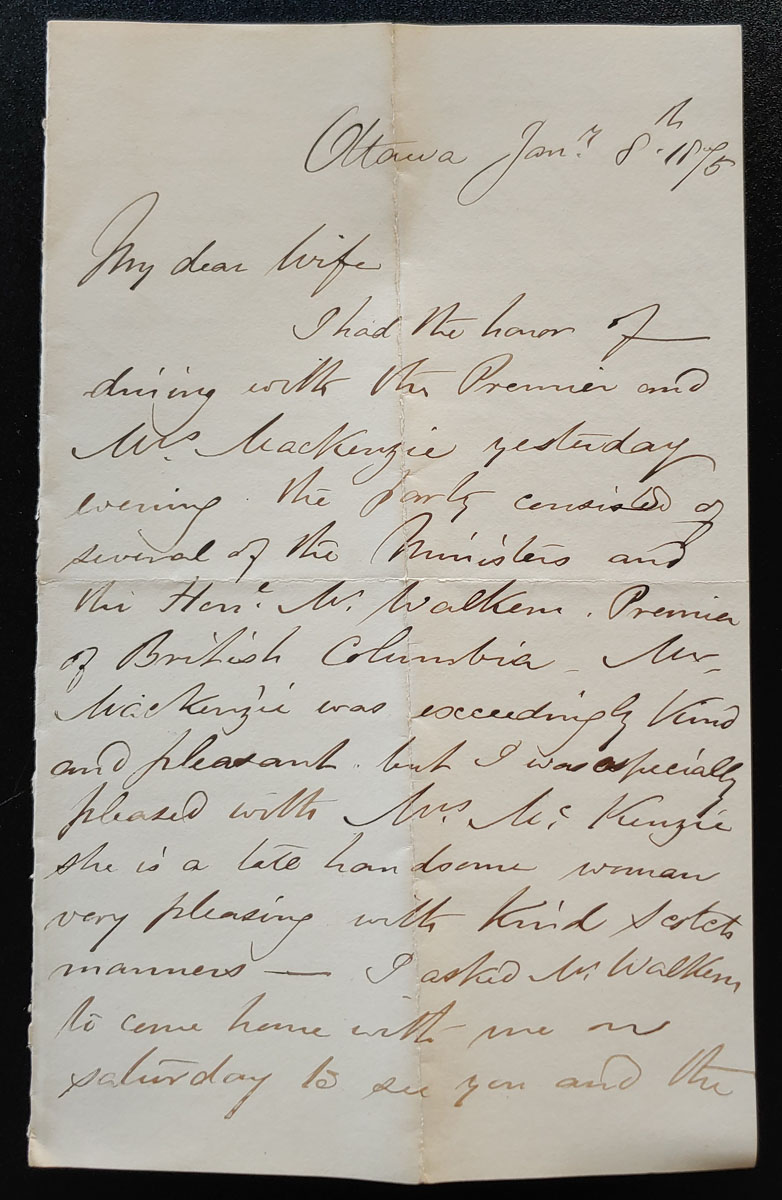 Ottawa Jan.y 8.th 1875
My dear Wife
I had the honor of
dining with the Premier and
Mrs. MacKenzie yesterday
evening. the party consisted of
several of the Ministers and
the Honl. Mr. Walkem. Premier
of British Columbia _ Mr.
MacKenzie was exceedingly Kind
and pleasant. but I was especially
pleased with Mrs. Mc. Kenzie
she is a handsome woman
very pleasing with Kind Scotch
manners — I asked Mr. Walkem
to come home with me on
saturday to see you and the